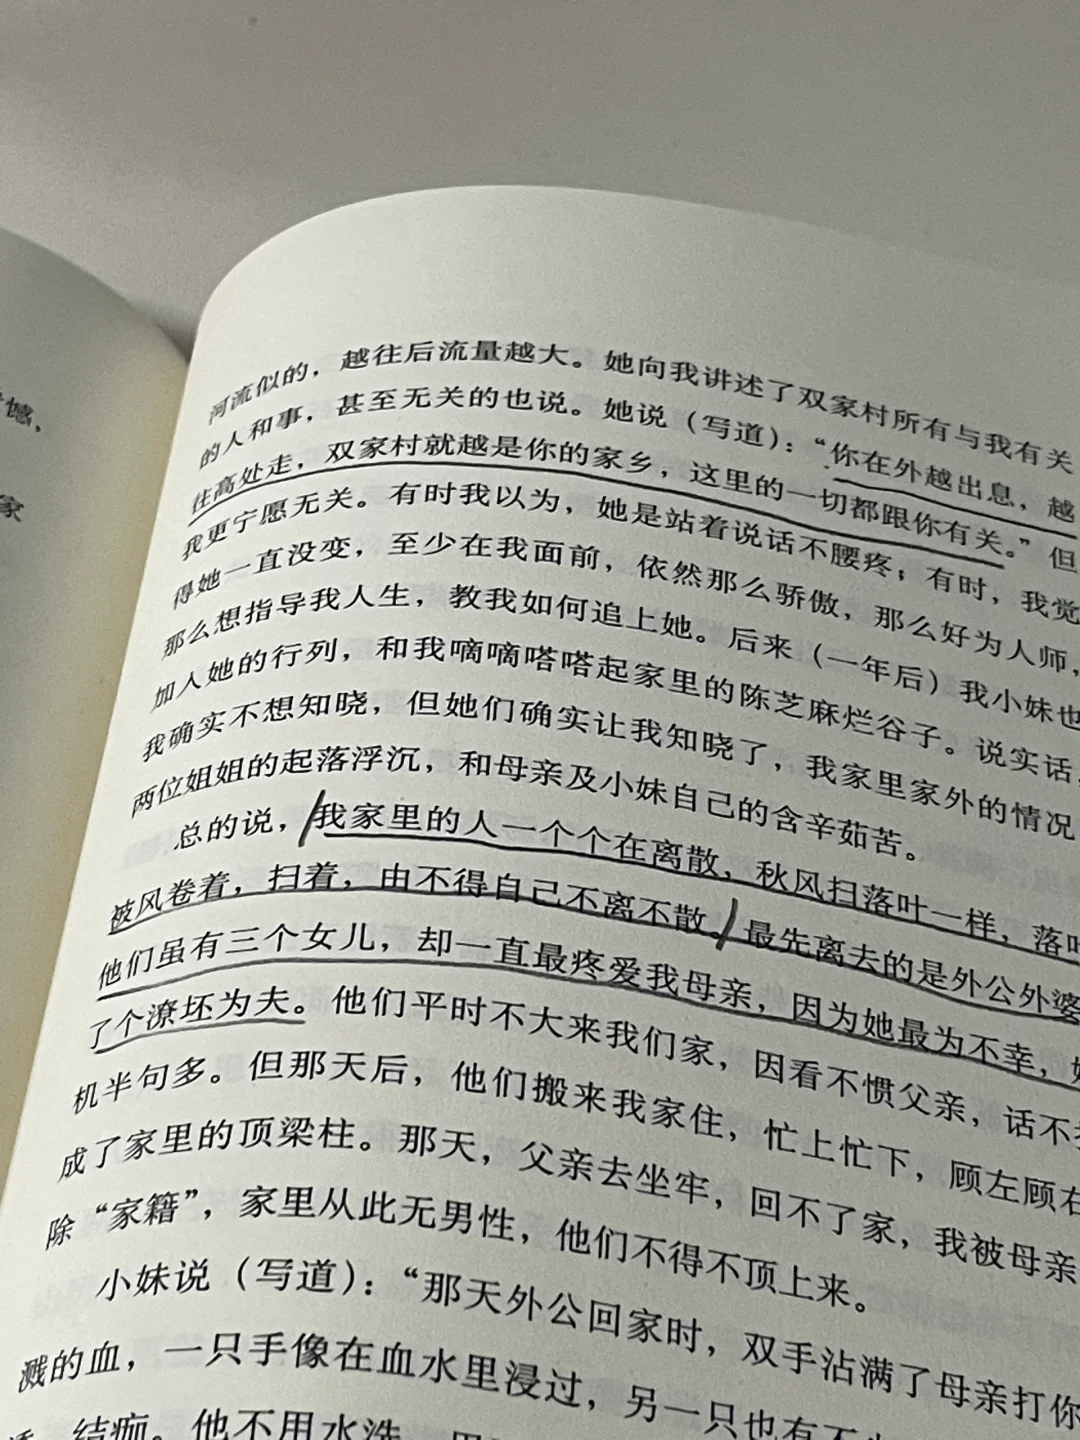 憾，
家
河流似的，越往后流量越大。她向我讲述了双家村所有与我有关
的人和事，甚至无关的也说。她说（写道）：“你在外越出息，越
往高处走，双家村就越是你的家乡，这里的一切都跟你有关。”但
我更宁愿无关。有时我以为，她是站着说话不腰疼；有时，我觉
得她一直没变，至少在我面前，依然那么骄傲，那么好为人师，
那么想指导我人生，教我如何追上她。后来（一年后）我小妹也
加入她的行列，和我嘀嘀嗒嗒起家里的陈芝麻烂谷子。说实话，
我确实不想知晓，但她们确实让我知晓了，我家里家外的情况
两位姐姐的起落浮沉，和母亲及小妹自己的含辛茹苦。
总的说，我家里的人一个个在离散，秋风扫落叶一样，落叶
被风卷着，扫着，由不得自己不离不散。最先离去的是外公外婆
他们虽有三个女儿，却一直最疼爱我母亲，因为她最为不幸，
了个潦坯为夫。他们平时不大来我们家，因看不惯父亲，话不
机半句多。但那天后，他们搬来我家住，忙上忙下，顾左顾右
成了家里的顶梁柱。那天，父亲去坐牢，回不了家，我被母亲
除“家籍”，家里从此无男性，他们不得不顶上来。
小妹说（写道）：“那天外公回家时，双手沾满了母亲打你
溅的血，一只手像在血水里浸过，另一只也有不
结痂。他不用水洗，用